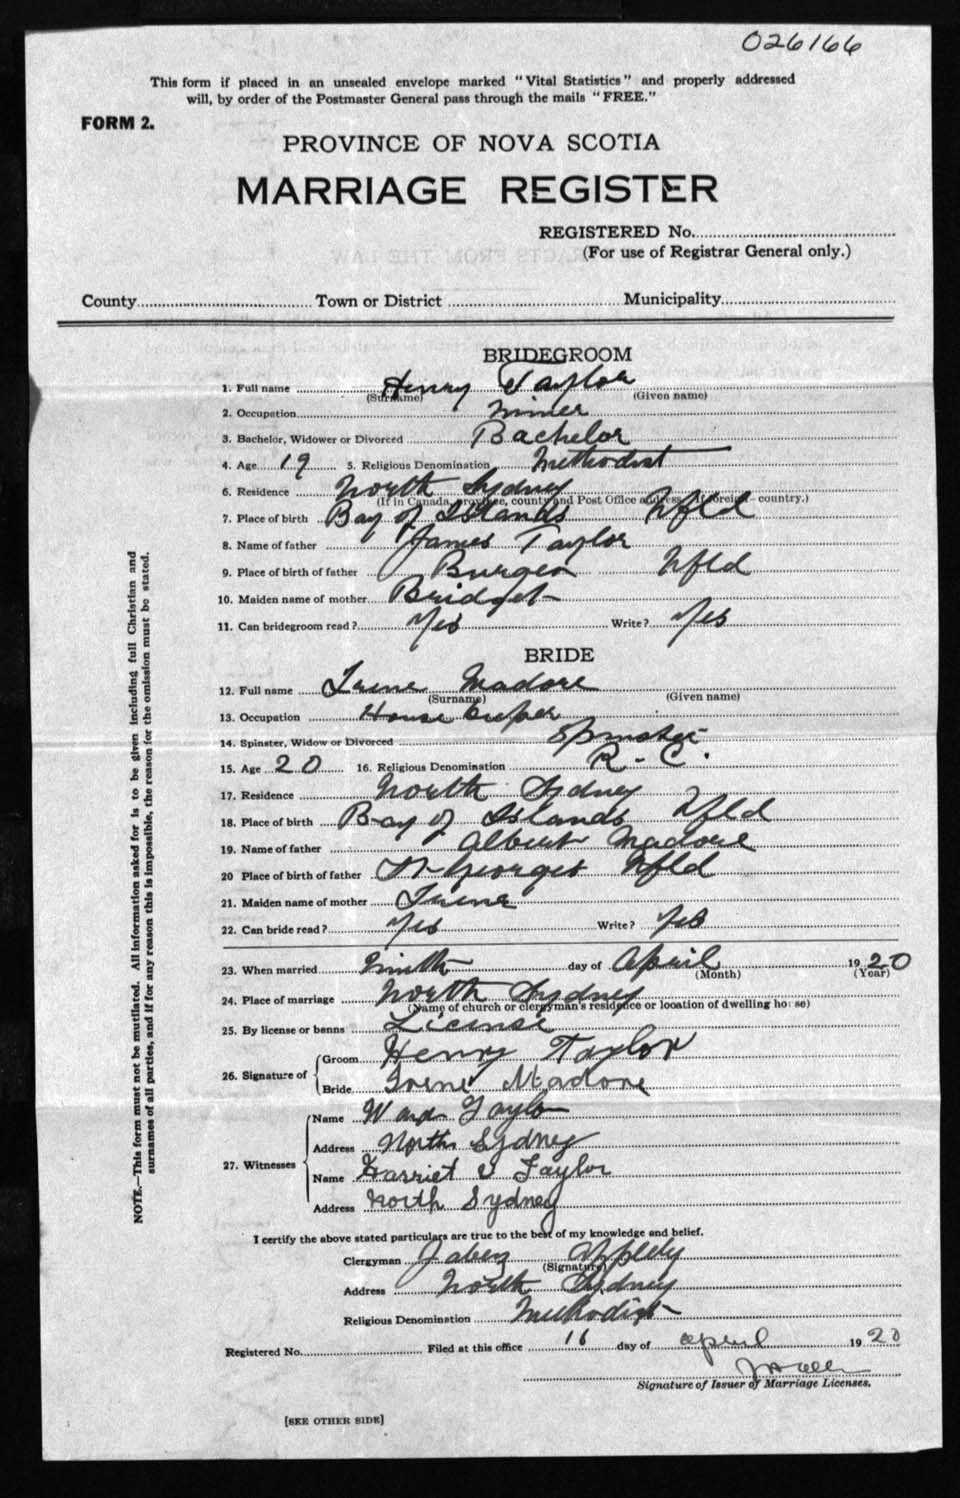 026166
This form if placed in an unsealed envelope marked "Vital Statistics" and properly addressed
will, by order of the Postmaster General pass through the mails "FREE."
FORM 2.
PROVINCE OF NOVA SCOTIA
MARRIAGE REGISTER
REGISTERED No.
(For use of Registrar General only.)
County Town or District Municipality
BRIDEGROOM
1. Full name Henry Taylor
(Surname) (Given name)
2. Occupation Miner
3. Bachelor, Widower or Divorced Bachelor
4. Age 19 5. Religious Denomination Methodist
6. Residence North Sydney
(If in Canada, province, county and Post Office address. If foreign—country.)
7. Place of birth Bay of Islands Nfld
8. Name of father James Taylor
9. Place of birth of father Burgeo Nfld
10. Maiden name of mother Bridget
11. Can bridegroom read? Yes Write? Yes
BRIDE
12. Full name Irene Madore
(Surname) (Given name)
13. Occupation House Keeper
14. Spinster, Widow or Divorced Spinster
15. Age 20 16. Religious Denomination R-C.
17. Residence North Sydney
18. Place of birth Bay of Islands Nfld
19. Name of father Albert Madore
20 Place of birth of father St Georges Nfld
21. Maiden name of mother Irene
22. Can bride read? Yes Write? Yes
23. When married Ninth day of April 1920
(Month) (Year)
24. Place of marriage North Sydney
(Name of church or clergyman's residence or location of dwelling house)
25. By license or banns License
26. Signature of Groom Henry Taylor
Bride Irene Madore
27. Witnesses Name Taylor
Address North Sydney
Name Harriet Taylor
Address North Sydney
I certify the above stated particulars are true to the best of my knowledge and belief.
Clergyman Jabez
(Signature)
Address North Sydney
Religious Denomination Methodist
Registered No. Filed at this office 16 day of April 1920
Signature of Issuer of Marriage Licenses.
[SEE OTHER SIDE]
NOTE.—This form must not be mutilated. All information asked for is to be given including full Christian and
surnames of all parties, and if for any reason this is impossible, the reason for the omission must be stated.